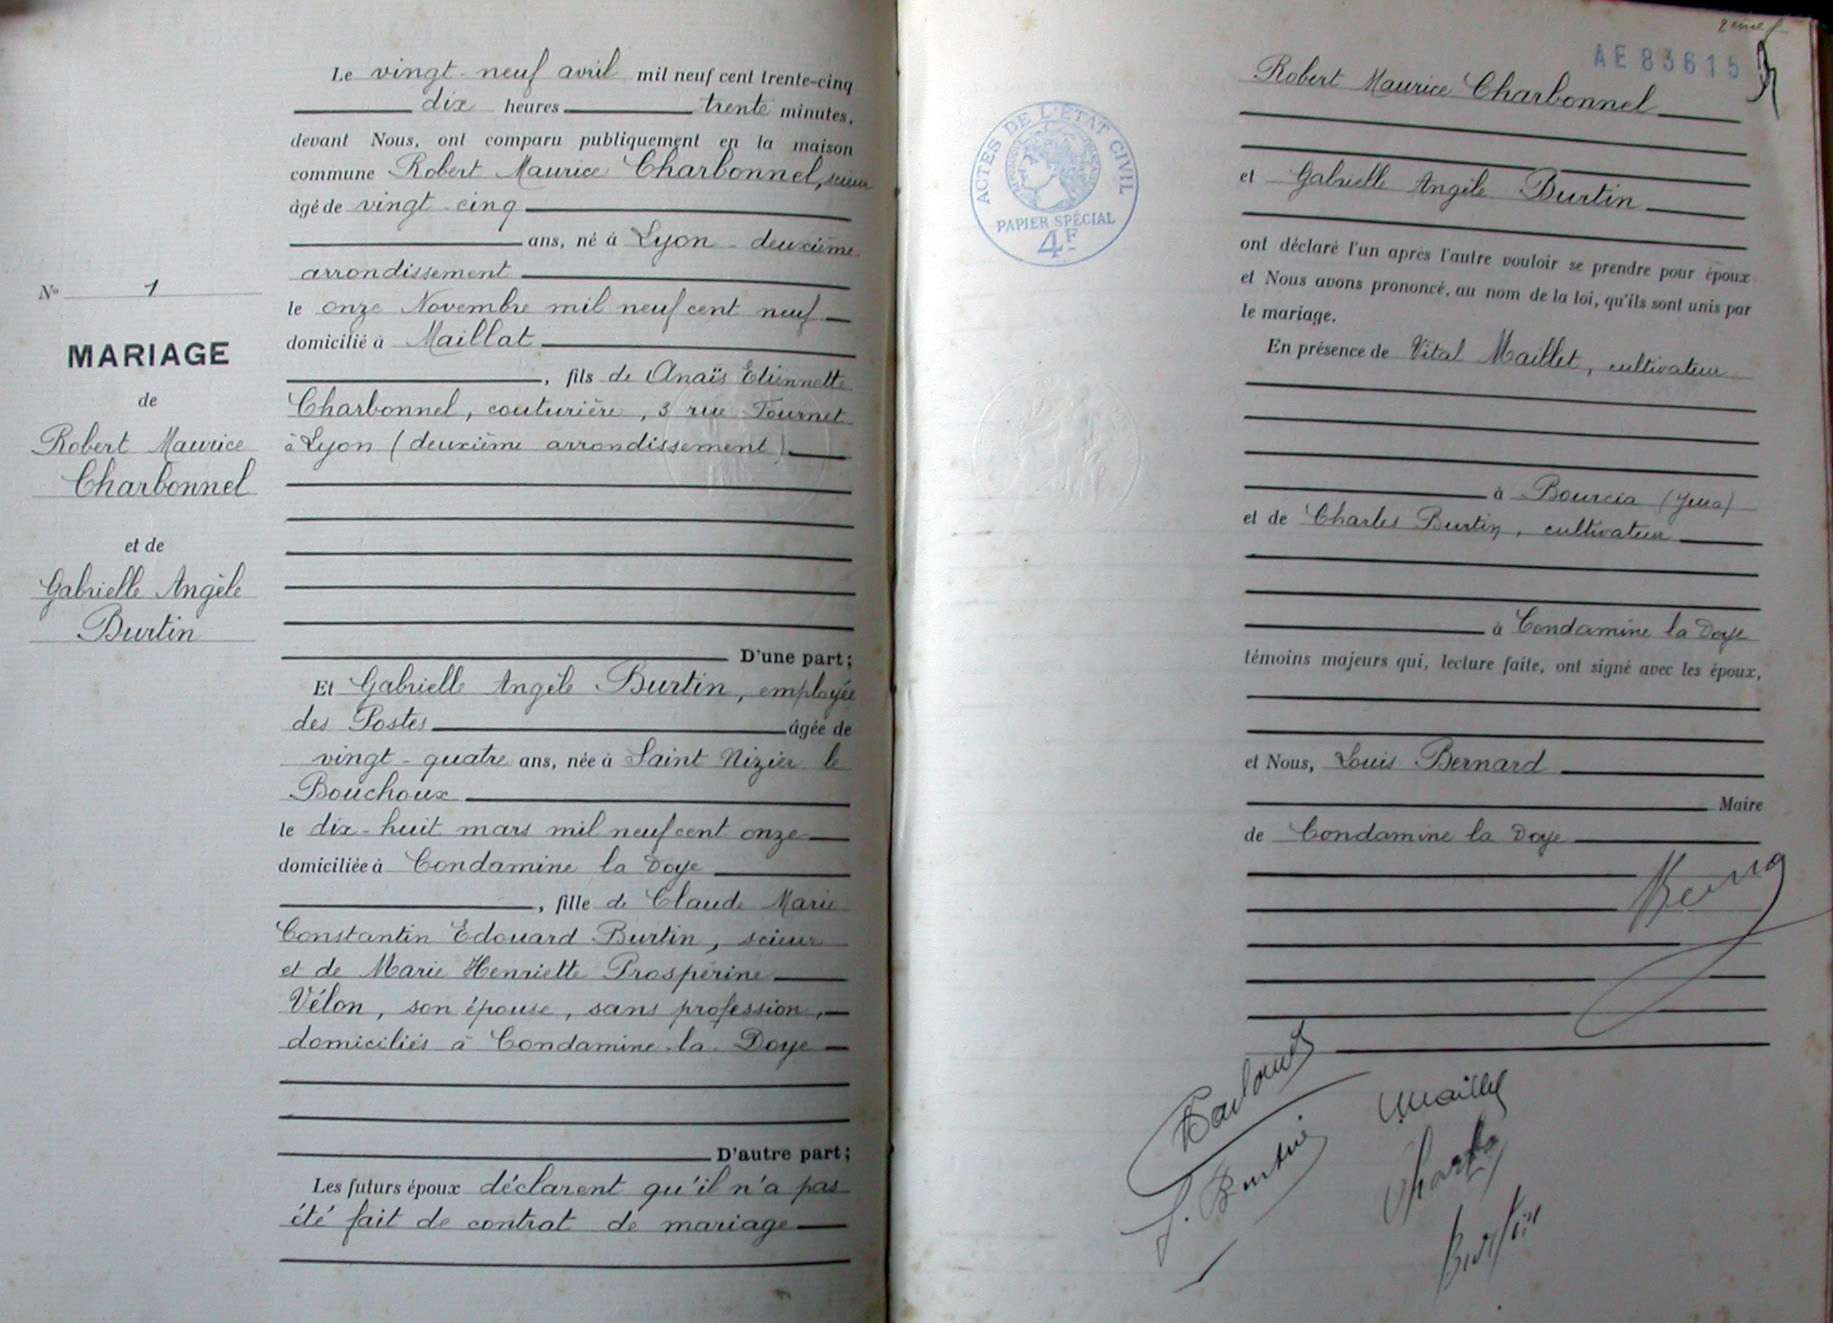 Le vingt-neuf avril mil neuf cent trente-cinq
dix heures trente minutes,
devant Nous, ont comparu publiquement en la maison
commune Robert Maurice Charbonnel, scieur
âgé de vingt-cinq
ans, né à Lyon - deuxième
arrondissement
le onze Novembre mil neuf cent neuf
domicilié à Maillat
, fils de Anaïs Etiennette
Charbonnel, couturière, 3 rue Tournet
à Lyon (deuxième arrondissement)
D'une part;
Et Gabrielle Angèle Burtin, employée
des Postes âgée de
vingt-quatre ans, née à Saint Nizier le
Bouchoux
le dix-huit mars mil neuf cent onze
domiciliée à Condamine la Doye
, fille de Claude Marie
Constantin Edouard Burtin, scieur
et de Marie Henriette Prospérine
Vélon, son épouse, sans profession,
domiciliés à Condamine-la-Doye
D'autre part;
Les futurs époux déclarent qu'il n'a pas
été fait de contrat de mariage
No 1
MARIAGE
de
Robert Maurice
Charbonnel
et de
Gabrielle Angèle
Burtin
2ème f
AE 83615
ACTES DE L'ÉTAT CIVIL
RÉPUBLIQUE FRANÇAISE
PAPIER SPÉCIAL
4F
Robert Maurice Charbonnel
et Gabrielle Angèle Burtin
ont déclaré l'un après l'autre vouloir se prendre pour époux
et Nous avons prononcé, au nom de la loi, qu'ils sont unis par
le mariage.
En présence de Vital Maillet, cultivateur
à Bourcia (Jura)
et de Charles Burtin, cultivateur
à Condamine la Doye
témoins majeurs qui, lecture faite, ont signé avec les époux,
et Nous, Louis Bernard
Maire
de Condamine la Doye
G. Burtin
Maillet
Charles
Burtin